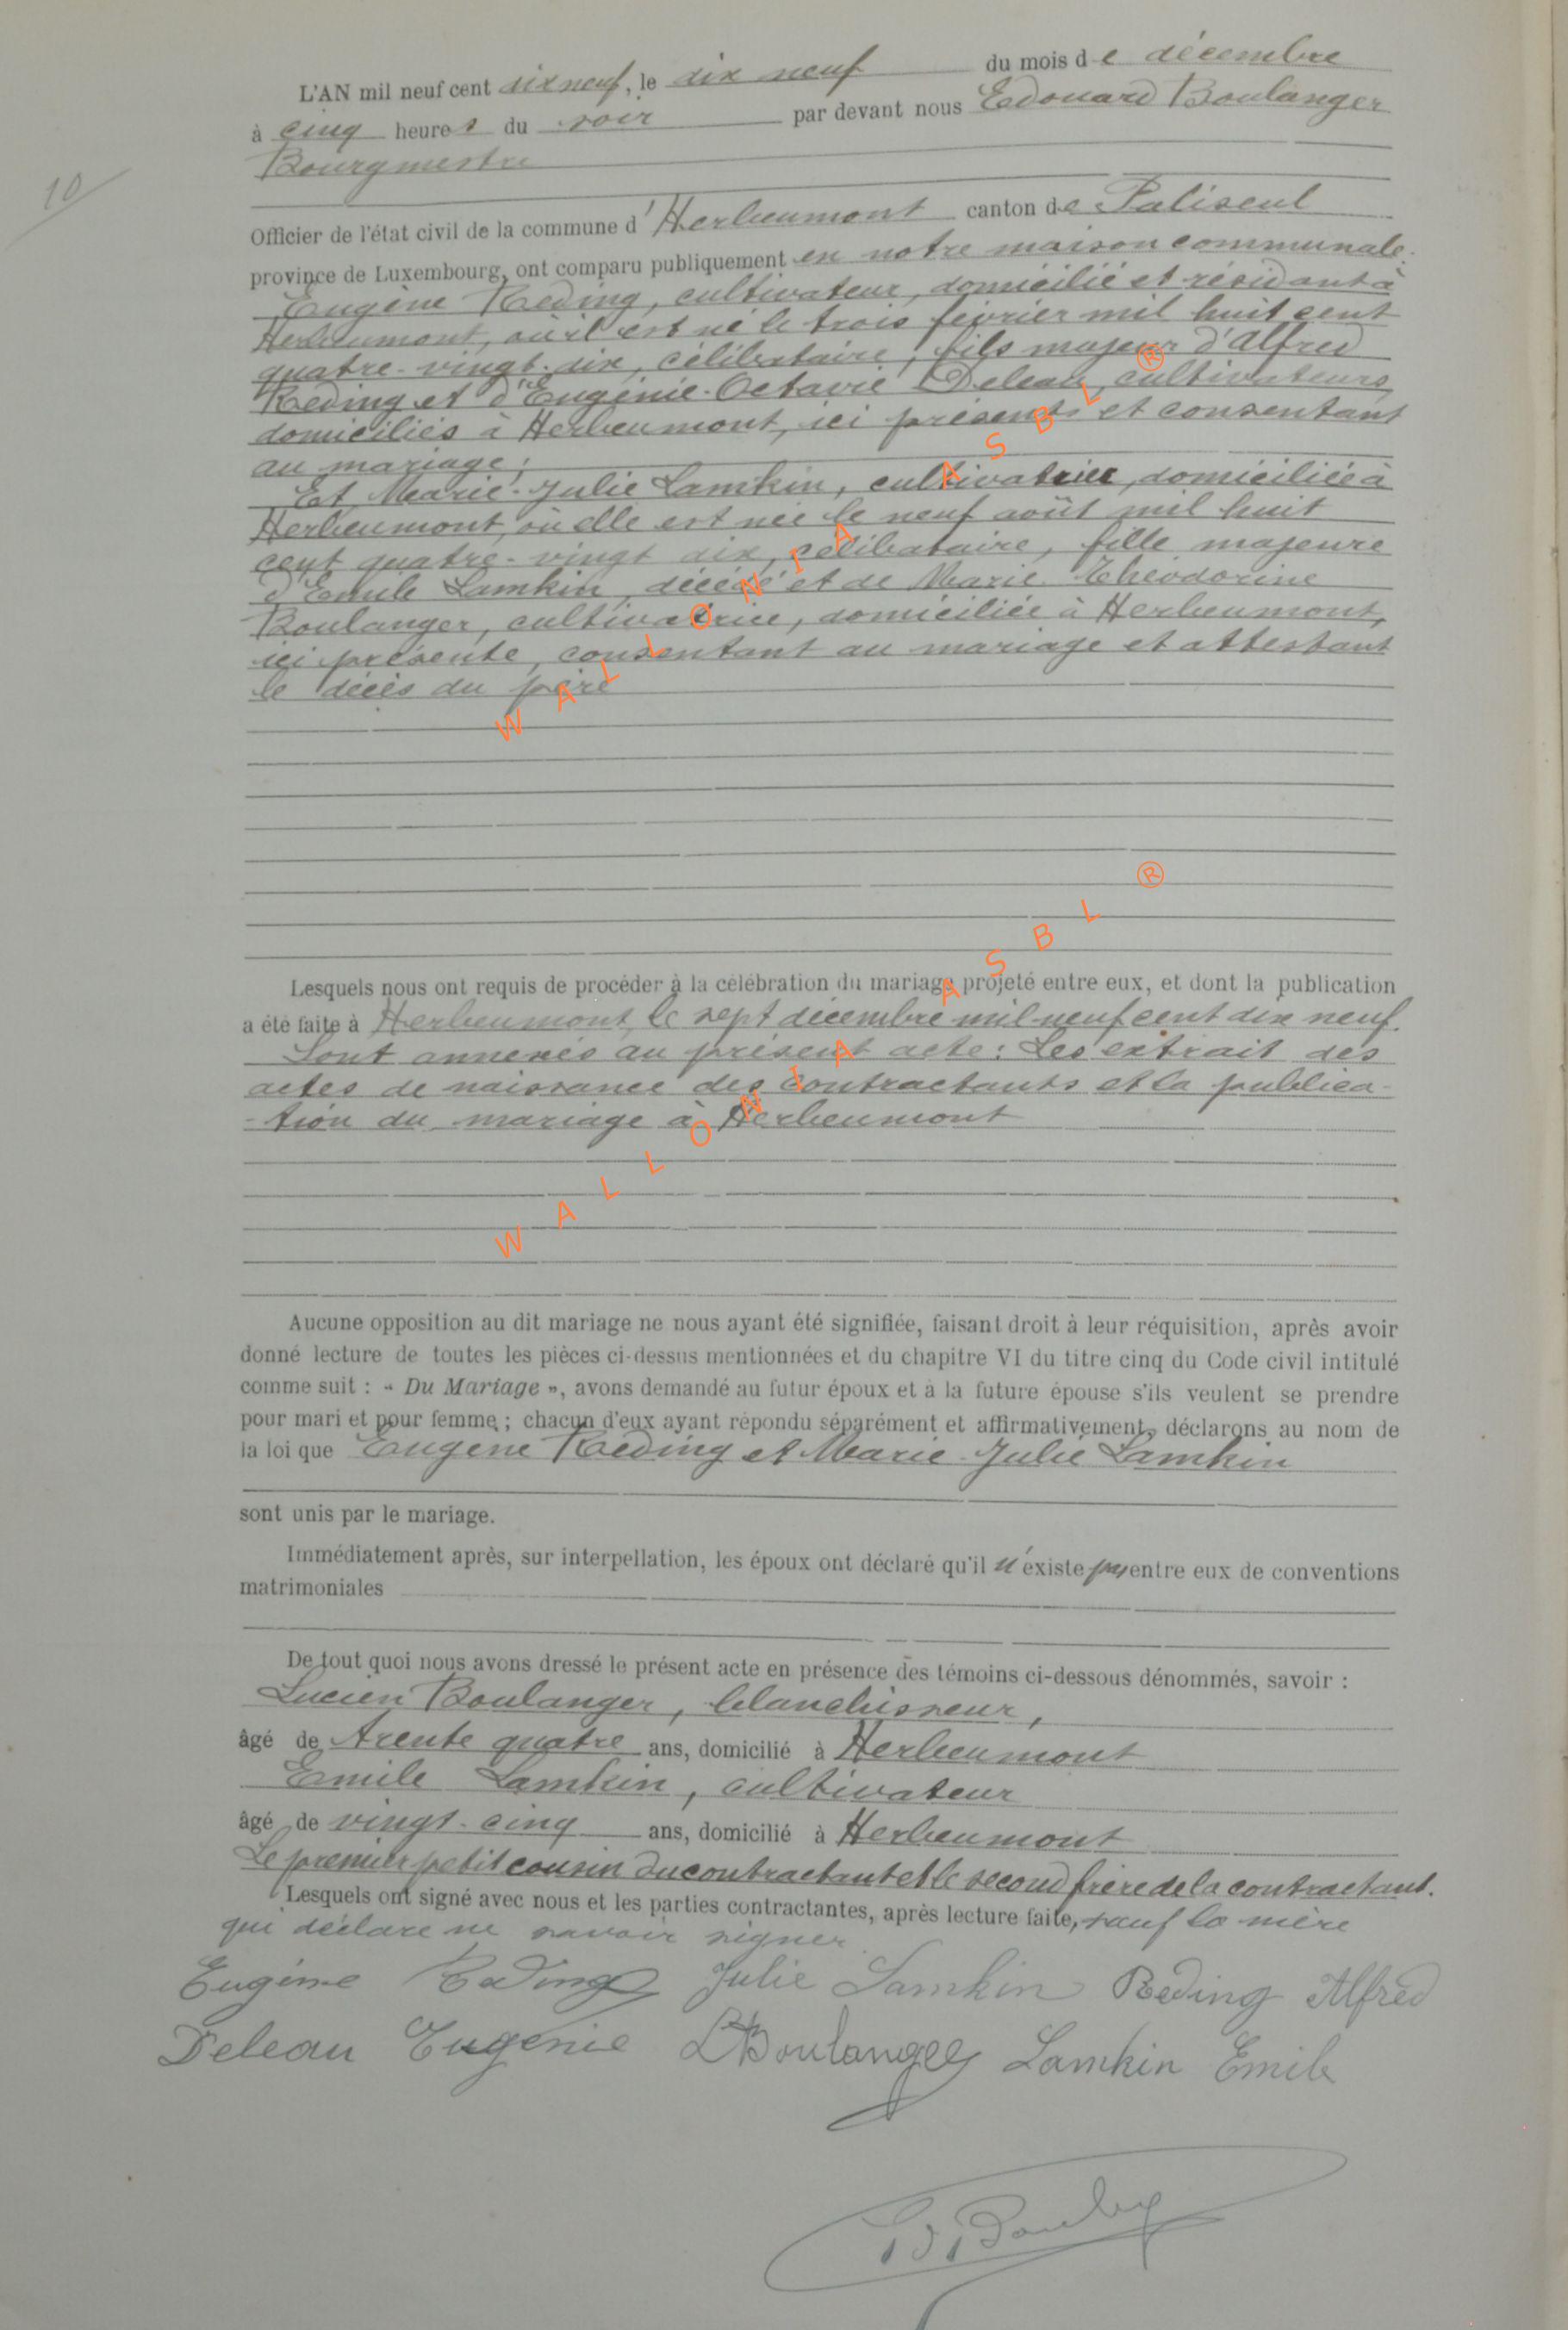 L'AN mil neuf cent dix neuf, le dix neuf du mois de décembre
à cinq heures du soir par devant nous Edouard Boulanger
Bourgmestre
10
Officier de l'état civil de la commune d'Herbeumont canton de Paliseul
province de Luxembourg, ont comparu publiquement en notre maison communale.
Eugène Reding, cultivateur, domicilié et résidant à
Herbeumont, où il est né le trois février mil huit cent
quatre-vingt-dix, célibataire, fils majeur d'Alfred
Reding et d'Eugénie-Octavie Deleau, cultivateurs,
domiciliés à Herbeumont, ici présents et consentant
au mariage;
Et Marie-Julie Lamkin, cultivatrice, domiciliée à
Herbeumont, où elle est née le neuf août mil huit
cent quatre-vingt dix, célibataire, fille majeure
d'Emile Lamkin, décédé et de Marie Théodorine
Boulanger, cultivatrice, domiciliée à Herbeumont,
ici présente, consentant au mariage et attestant
le décès du père
WALLONIA ASBL ®
Lesquels nous ont requis de procéder à la célébration du mariage projeté entre eux, et dont la publication
a été faite à Herbeumont, le sept décembre mil-neuf cent dix neuf.
Sont annexés au présent acte: Les extrait des
actes de naissance des contractants et la publica-
-tion du mariage à Herbeumont
WALLONIA ASBL ®
Aucune opposition au dit mariage ne nous ayant été signifiée, faisant droit à leur réquisition, après avoir
donné lecture de toutes les pièces ci-dessus mentionnées et du chapitre VI du titre cinq du Code civil intitulé
comme suit : « Du Mariage », avons demandé au futur époux et à la future épouse s'ils veulent se prendre
pour mari et pour femme ; chacun d'eux ayant répondu séparément et affirmativement, déclarons au nom de
la loi que Eugène Reding et Marie-Julie Lamkin
sont unis par le mariage.
Immédiatement après, sur interpellation, les époux ont déclaré qu'il n'existe pas entre eux de conventions
matrimoniales
De tout quoi nous avons dressé le présent acte en présence des témoins ci-dessous dénommés, savoir :
Lucien Boulanger, blanchisseur,
âgé de trente quatre ans, domicilié à Herbeumont
Emile Lamkin, cultivateur
âgé de vingt-cinq ans, domicilié à Herbeumont
Le premier petit cousin du contractant et le second frère de la contractant.
Lesquels ont signé avec nous et les parties contractantes, après lecture faite, sauf la mère
qui déclare ne savoir signer
Eugène Reding Julie Lamkin Reding Alfred
Deleau Eugénie LBoulanger Lamkin Emile